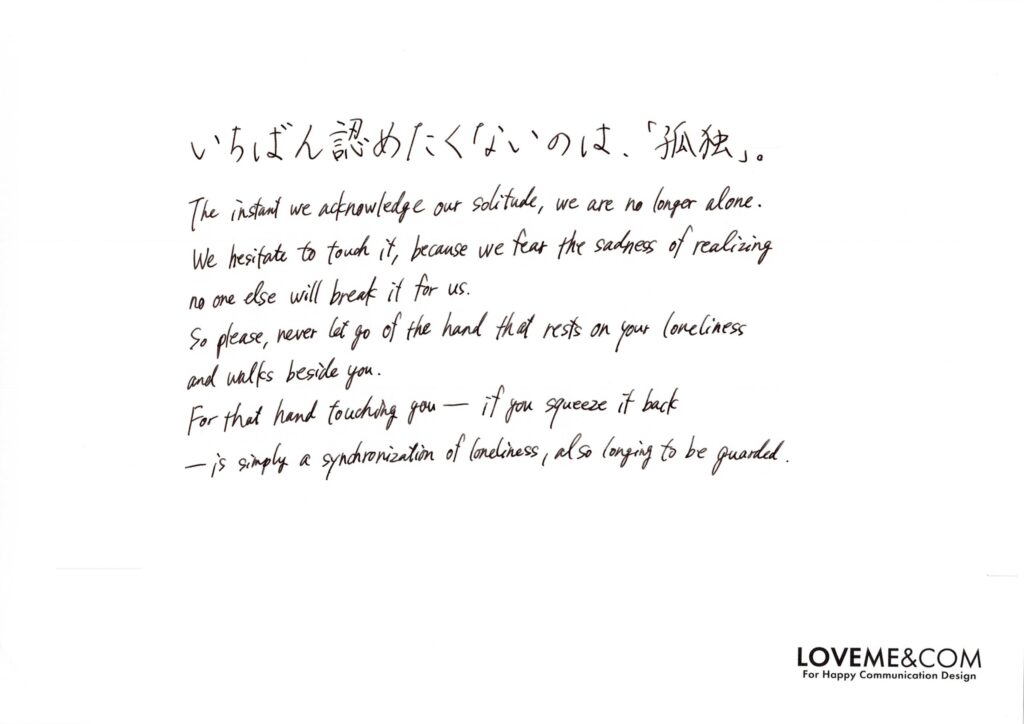 いちばん認めたくないのは、「孤独」。
The instant we acknowledge our solitude, we are no longer alone.
We hesitate to touch it, because we fear the sadness of realizing
no one else will break it for us.
So please, never let go of the hand that rests on your loneliness
and walks beside you.
For that hand touching you — if you squeeze it back
— is simply a synchronization of loneliness, also longing to be guarded.
LOVEME&COM
For Happy Communication Design